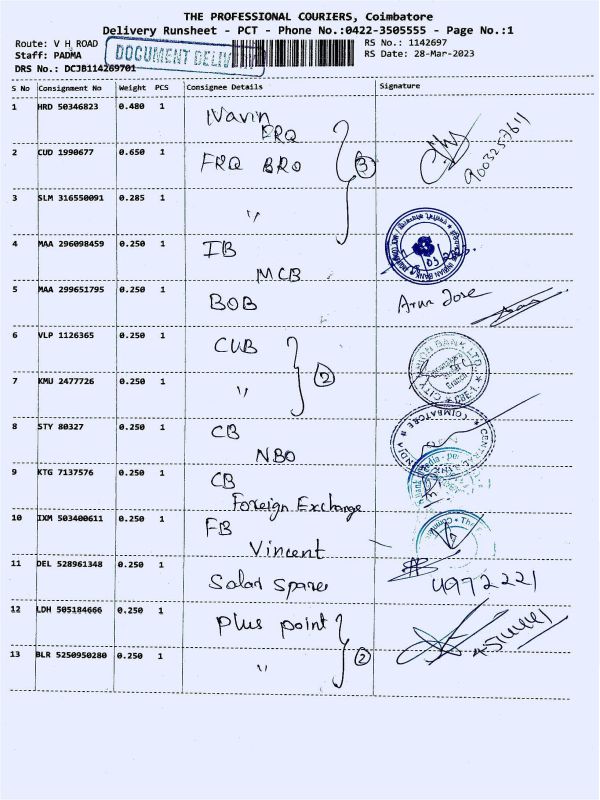 THE PROFESSIONAL COURIERS, Coimbatore
Delivery Runsheet - PCT - Phone No.:0422-3505555 - Page No.:1
Route: V H ROAD
Staff: PADMA
DRS No.: DCJB114269701
DOCUMENT DELIV
RS No.: 1142697
RS Date: 28-Mar-2023
S No Consignment No Weight PCS Consignee Details Signature
1 HRD 50346823 0.480 1 Navin
FRQ
2 CUD 1990677 0.650 1 FRQ BRO 3
9003257611
3 SLM 316550091 0.285 1 "
4 MAA 296098459 0.250 1 IB
MCB
5 MAA 299651795 0.250 1 BOB Arun Jose
6 VLP 1126365 0.250 1 CUB 2
CITY UNION BANK LTD.
7 KMU 2477726 0.250 1 "
8 STY 80327 0.250 1 CB
COIMBATORE
NBO
9 KTG 7137576 0.250 1 CB
Foreign Exchange
10 IXM 503400611 0.250 1 FB
Vincent
11 DEL 528961348 0.250 1 Solar Spares 4972221
12 LDH 505184666 0.250 1 Plus point
13 BLR 5250950280 0.250 1 " 2